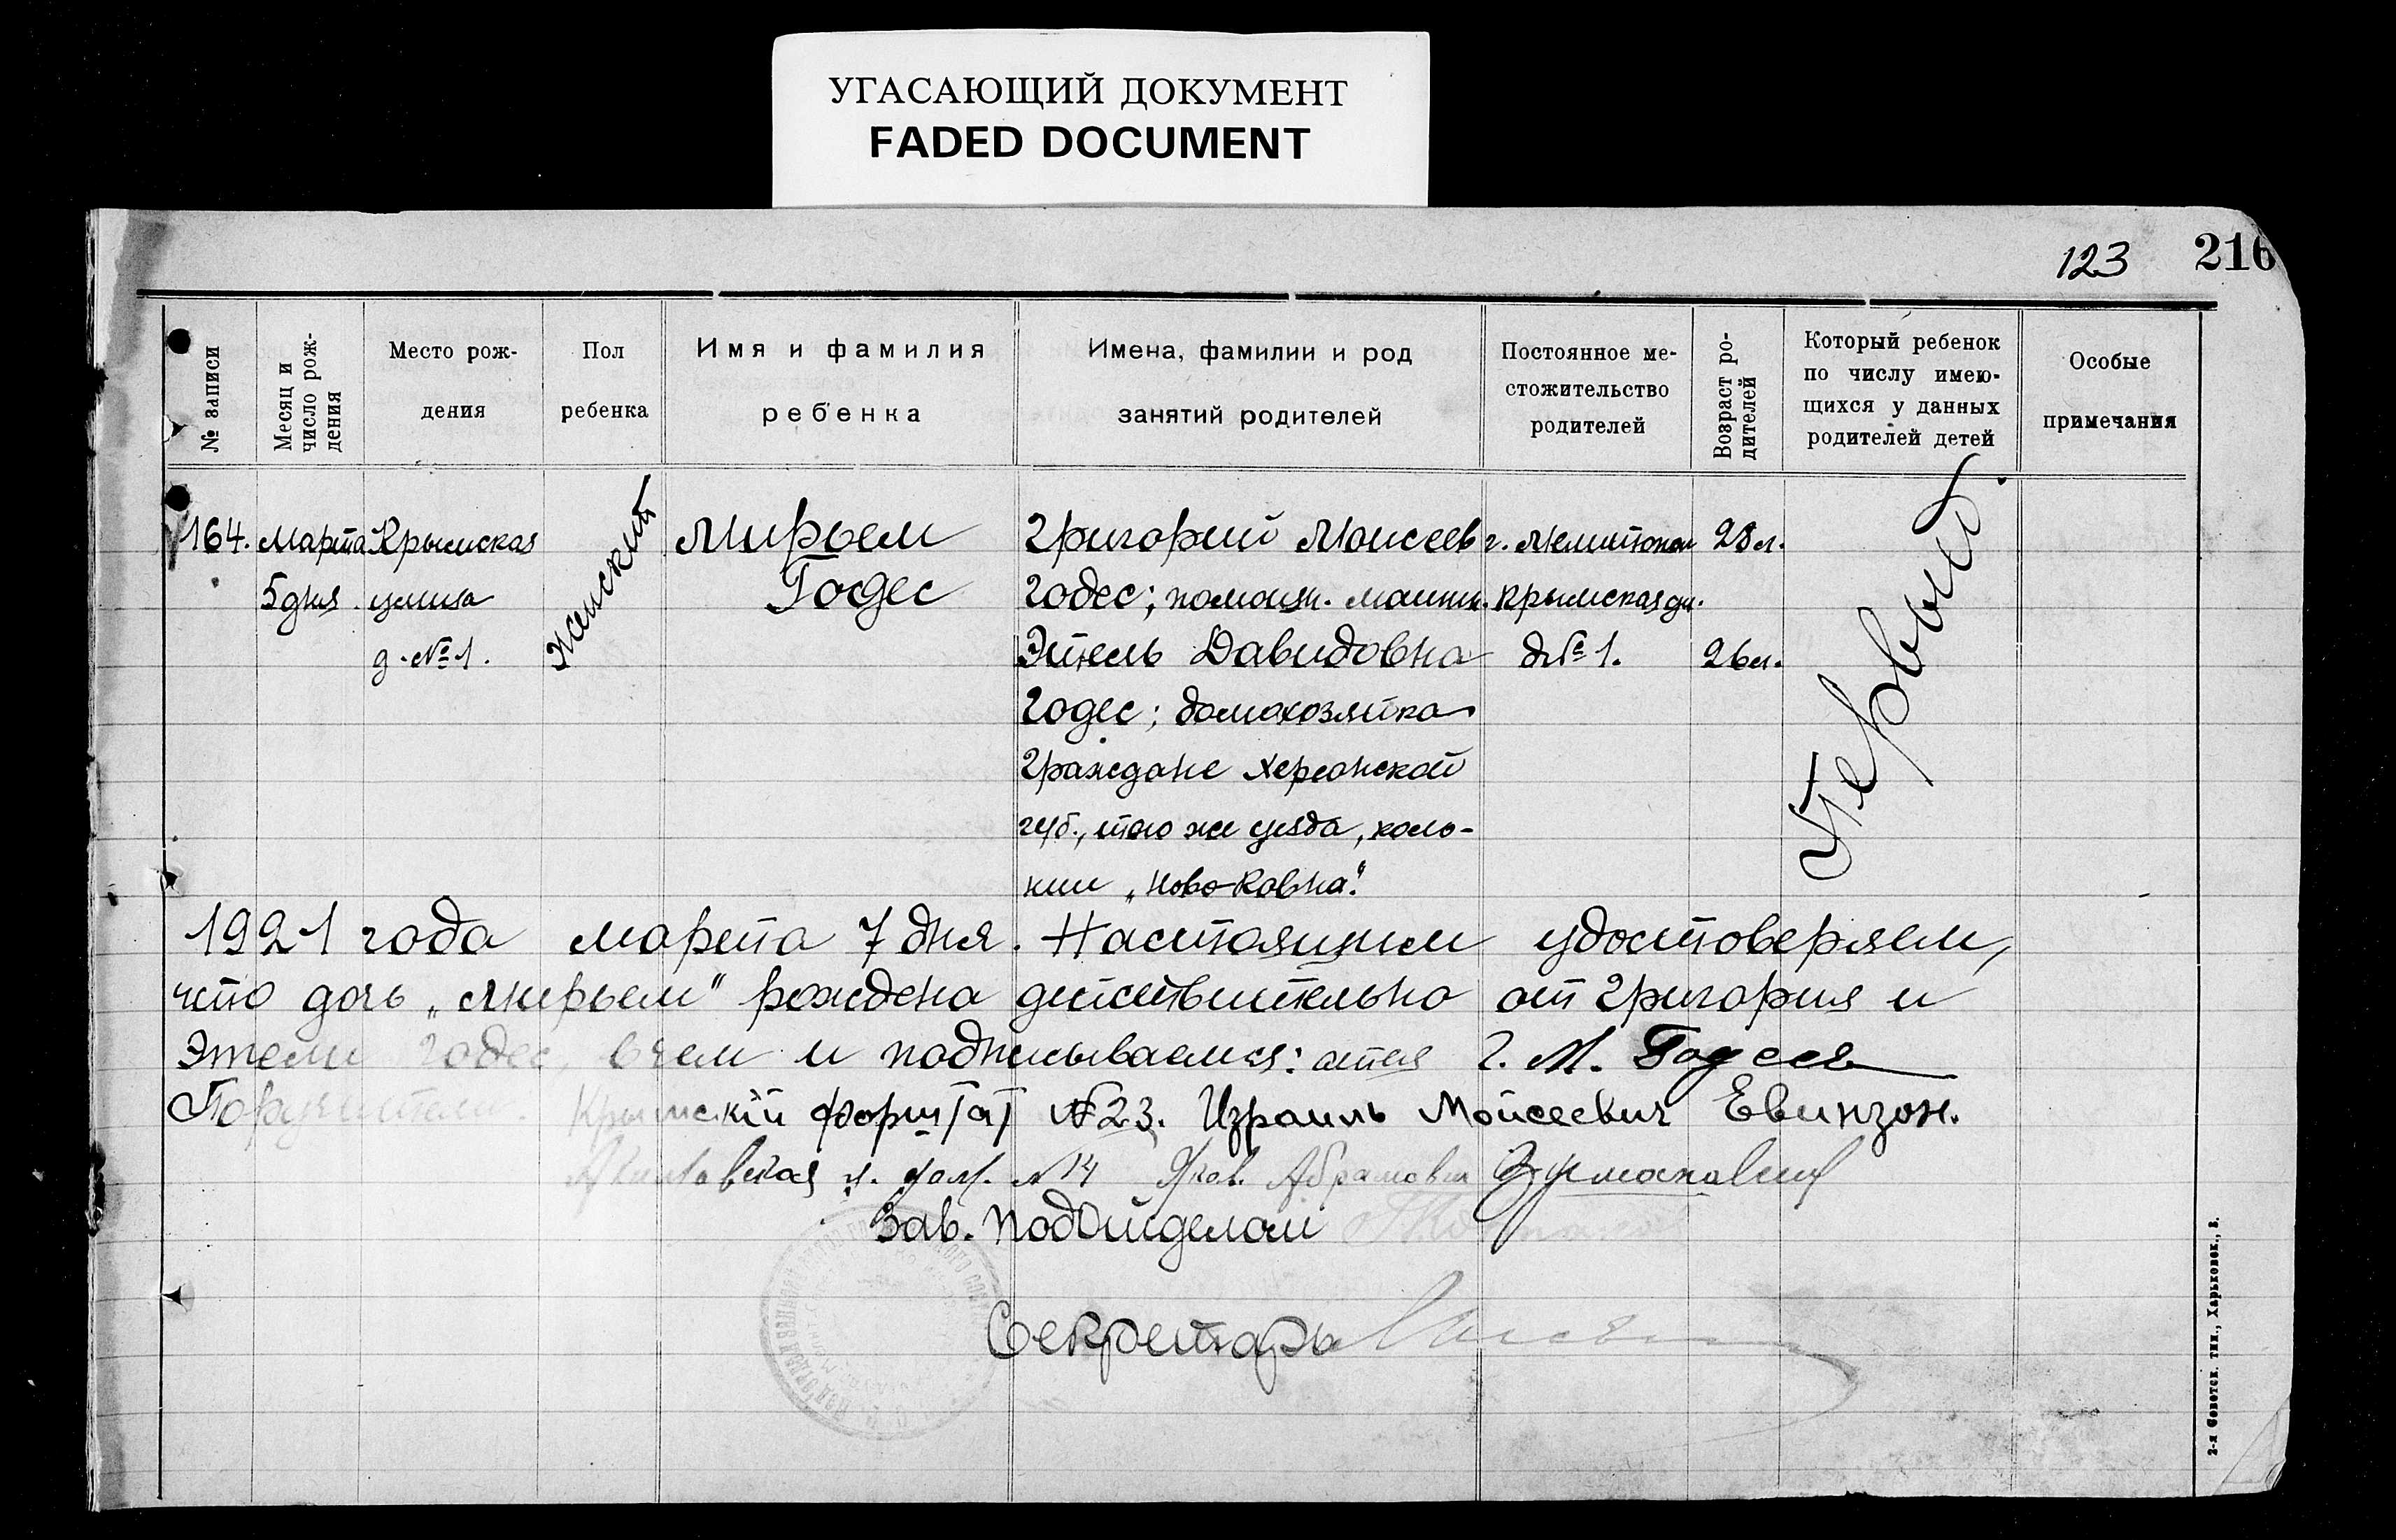 УГАСАЮЩИЙ ДОКУМЕНТ
FADED DOCUMENT
123 216
№ записи
Месяц и
число рож-
дения
Место рож-
дения
Пол
ребенка
Имя и фамилия
ребенка
Имена, фамилии и род
занятий родителей
Постоянное ме-
стожительство
родителей
Возраст ро-
дителей
Который ребенок
по числу имею-
щихся у данных
родителей детей
Особые
примечания
164.
Марта
5 дня.
Крымская
улица
д. № 1.
женский
Мирьем
Годес
Григорий Моисеев
Годес; помощн. машин.
Этель Давидовна
Годес; домохозяйка
Граждане Херсонской
губ., того же уезда, коло-
нии „Ново-Ковна."
г. Мелитополь
Крымская ул.
д № 1.
28 л.
26 л.
Первый.
1921 года марта 7 дня. Настоящим удостоверяем,
что дочь „Мирьем" рождена действительно от Григория и
Этели Годес, в чем и подписываемся: отец Г. М. Годес
Поручители: Крымский форштат № 23. Израиль Моисеевич Евинзон.
д. дом. № 14 Яков. Абрамович
Зав. Подотделом
Секретарь
2-я Советск. тип., Харьковск., 2.